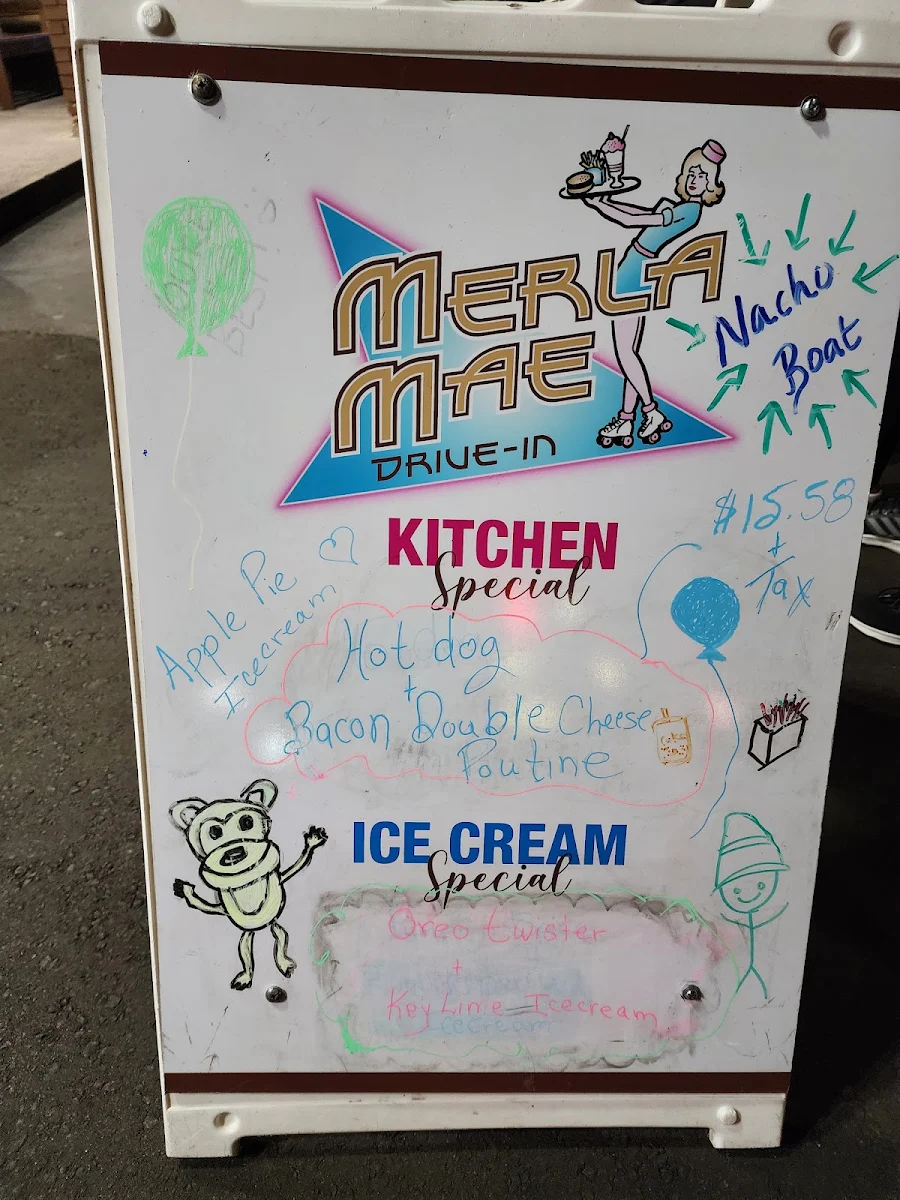 MERLA
MAE
DRIVE-IN
Nacho
Boat
KITCHEN
Special
$15.58
+
Tax
Apple Pie
Icecream
Hot dog
+
Bacon Double Cheese
Poutine
ICE CREAM
Special
Oreo twister
+
Key Lime Icecream